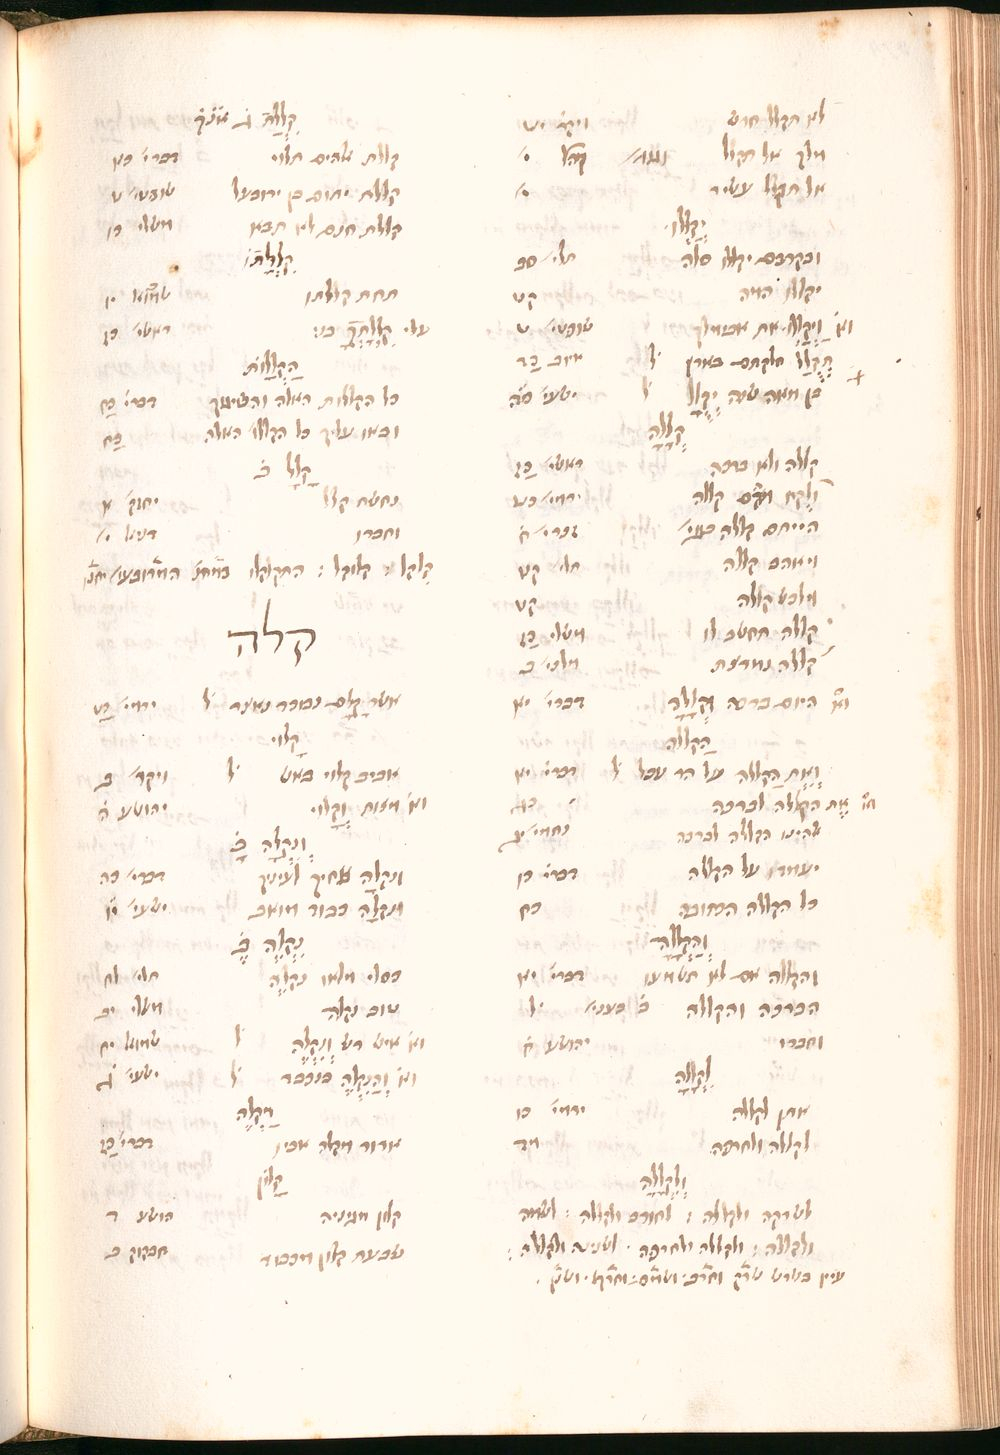 לא תקלל חרש ויקר׳ יט
מלך אל תקלל
אל תקלל עשיר י׳
יְקַלְלוּ
ובקרבם יקללו סלה תלי׳ סב
יקללו המה קט
וא׳ וַיְקַלְלוּ את אבימלך שופטי׳ ט
תְּקֻלַּל חלקתם בארץ ל׳ איוב כד
בן מאה שנה יְקֻלָּל ל׳ ישעי׳ סה
קְלָלָה
קללה ולא ברכה בראשי׳ כז
וְלֻקַּח מהם קללה ירמי׳ כט
הייתם קללה בגוי׳ זכרי׳ ח
ויאהב קללה תלי׳ קט
וילבש קללה קט
קללה תחשב לו משלי כז
קללה נמרצת מלכי׳ ב
וא׳ היום ברכה וּקְלָלָה דברי׳ יא
הַקְּלָלָה
וְאֶת הַקללה על הר עיבל ל׳ דברי׳ יא
את הקללה לברכה כג
אלהינו הקללה לברכה נחמי׳ יג
יעמדו על הקללה דברי׳ כז
כל הקללה הכתובה כט
וְהַקְּלָלָה
והקללה אם לא תשמעו דברי׳ יא
הברכה והקללה ב׳ בעני׳ ל׳
וחברו יהושע ח
לִקְלָלָה
אתן לקללה ירמי׳ כו
לקללה ולחרפה מד
וְלִקְלָלָה
לשרקה ולקללה : לחורב ולקללה : לשמה
ולקללה : ולקללה ולחרפה · לשנינה ולקללה :
עיין בשרש שרק וחרב · ושמם · וחרף · ושנן ·
קִלְלַת ג׳
קללת אלהים תלוי דברי׳ כא
קללת יותם בן ירובעל שופטי׳ ט
קללת חנם לא תבא משלי כו
קִלְלָתוֹ
תחת קללתו שמוא׳ יו
עלי קִלְלָתְךָ בני בראשי׳ כז
הַקְּלָלוֹת
כל הקללות האלה והשיגוך דברי׳ כח
ובאו עליך כל הקללו׳ האלה כח
קָלָל ב׳
נחשת קלל יחזק׳ א
וחברו דניא׳ י׳
קלקל · קלוקל : התקלקלו
קלה
אשר קָלָם מלך בבל באש ל׳ ירמי׳ כט
קָלוּי
אביב קלוי באש ל׳ ויקר׳ ב
וא׳ מצות וְקָלוּי יהושע ה
וְנִקְלָה ב׳
ונקלה אחיך לעיניך דברי׳ כה
ונקלה כבוד מואב ישעי׳ יו
נִקְלֶה ב׳
כסלי מלאו נִקְלֶה תלי׳ לח
טוב נקלה משלי יב
וא׳ איש רש וְנִקְלֶה ל׳ שמוא׳ יח
וא׳ וְהַנִּקְלֶה בנכבד ל׳ ישעי׳ ג
מַקְלֶה
ארור מקלה אביו דברי׳ כז
קָלוֹן
קלון מגניה הושע ד
שבעת קלון מכבוד חבקוק ב